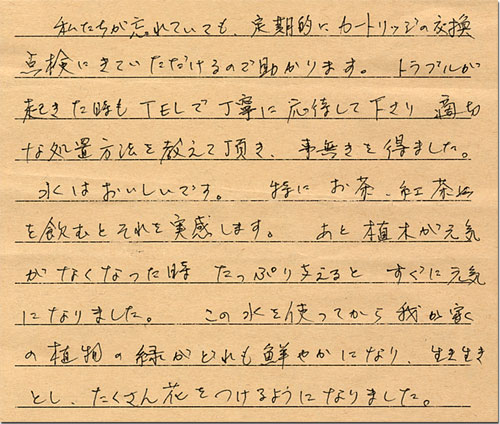 私たちが忘れていても、定期的にカートリッジの交換
点検にきていただけるので助かります。 トラブルが
起きた時もTELで丁寧に応待して下さり 適切
な処置方法を教えて頂き、事無きを得ました。
水はおいしいです。 特に お茶、紅茶
を飲むとそれを実感します。 あと 植木が元気
がなくなった時 たっぷり与えると すぐに元気
になりました。 この水を使ってから我が家
の植物の緑がどれも鮮やかになり、生き生き
とし、たくさん花をつけるようになりました。